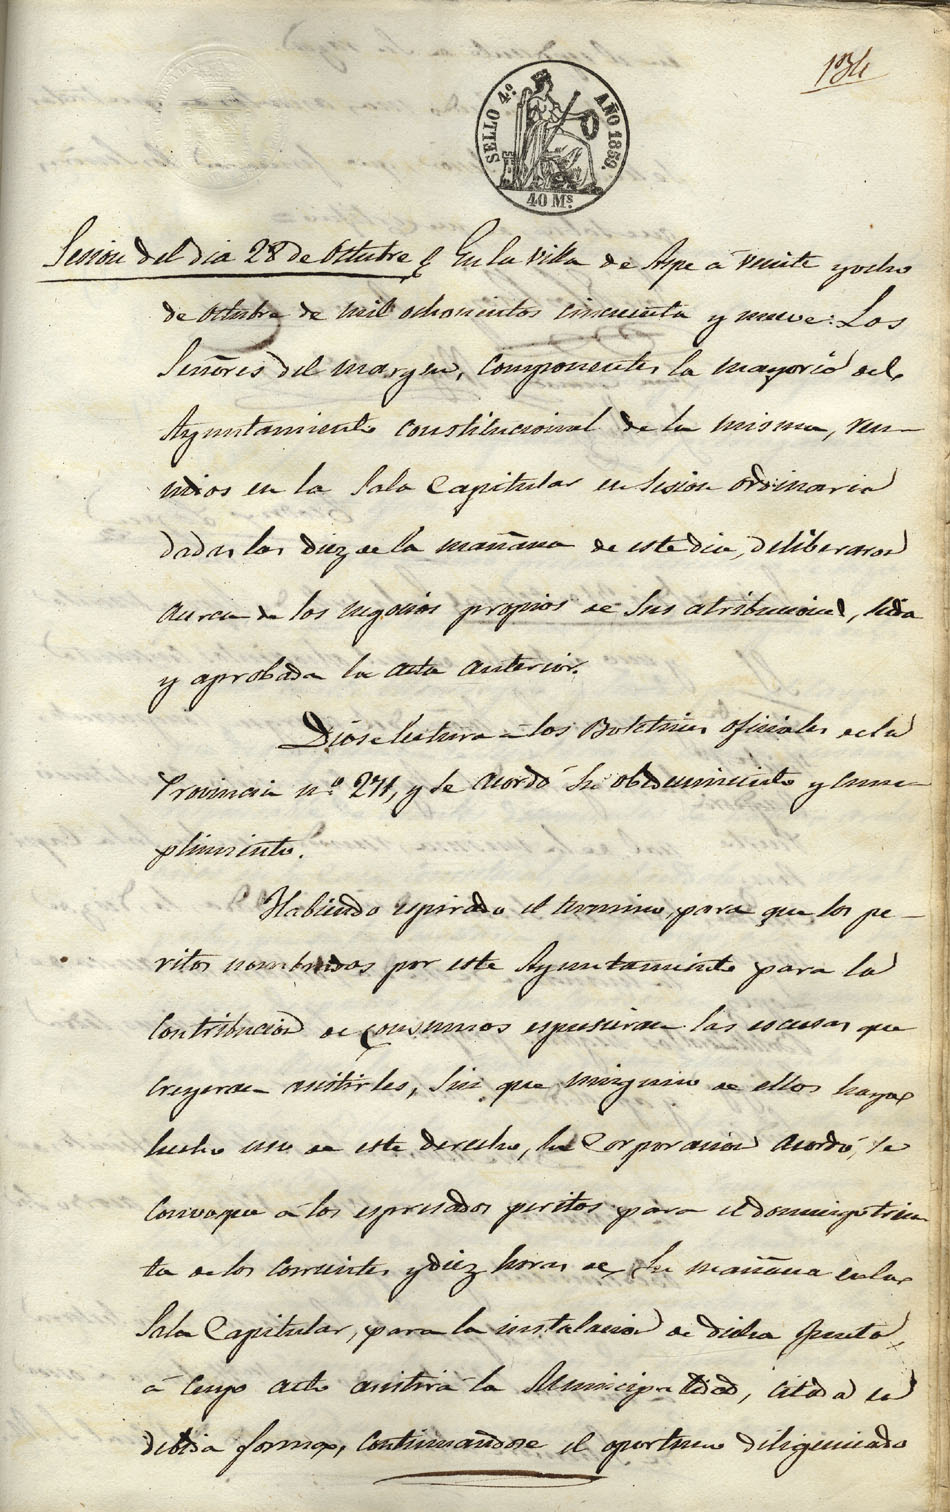 134
SELLO 4.º AÑO 1859.
40 Ms.
Sesion del dia 28 de Octubre En la Villa de Aspe á veinte y ocho
de Octubre de mil ochocientos cincuenta y nueve: Los
Señores del margen, componentes la mayoria del
Ayuntamiento constitucional de la misma, reu-
nidos en la Sala Capitular en sesion ordinaria
dadas las diez de la mañana de este dia, deliberaron
acerca de los negocios propios de sus atribuciones, leida
y aprobada la acta anterior.
Diose lectura á los Boletines oficiales de la
Provincia n.º 271, y se acordó su obedecimiento y cum-
plimiento.
Habiendo espirado el termino, para que los pe-
ritos nombrados por este Ayuntamiento para la
Contribucion de consumos espusieran las escusas que
creyeran asistirles, sin que ninguno de ellos haya
hecho uso de este derecho, la Corporacion acordó, se
convoque á los espresados peritos para el domingo trein-
ta de los corrientes y diez horas de su mañana en la
Sala Capitular, para la instalacion de dicha Junta
á cuyo acto asistirá la Municipalidad, citada en
debida forma, continuandose el oportuno diligenciado